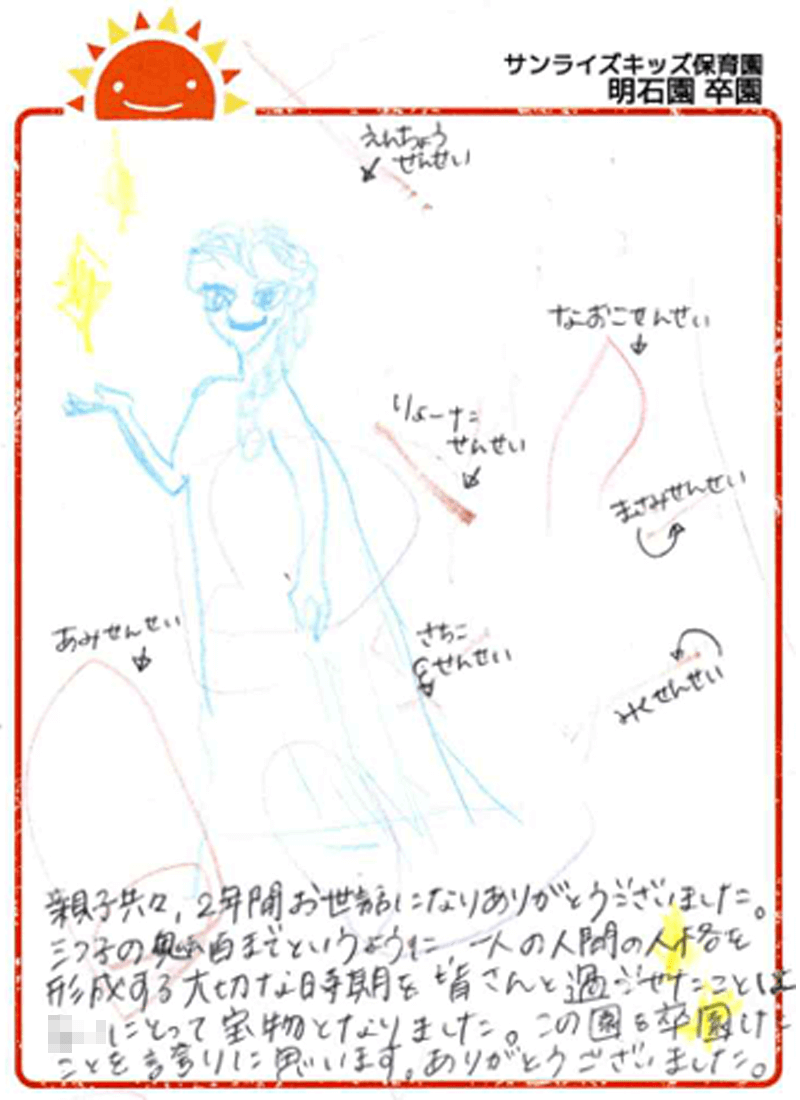 サンライズキッズ保育園
明石園 卒園
えんちょう
せんせい
なおこせんせい
りょーた
せんせい
まさみせんせい
あみせんせい
さちこ
せんせい
みくせんせい
親子共々、2年間お世話になりありがとうございました。
三つ子の魂百までというように、一人の人間の人格を
形成する大切な時期を皆さんと過ごせたことは
にとって宝物となりました。この園を卒園した
ことを誇りに思います。ありがとうございました。